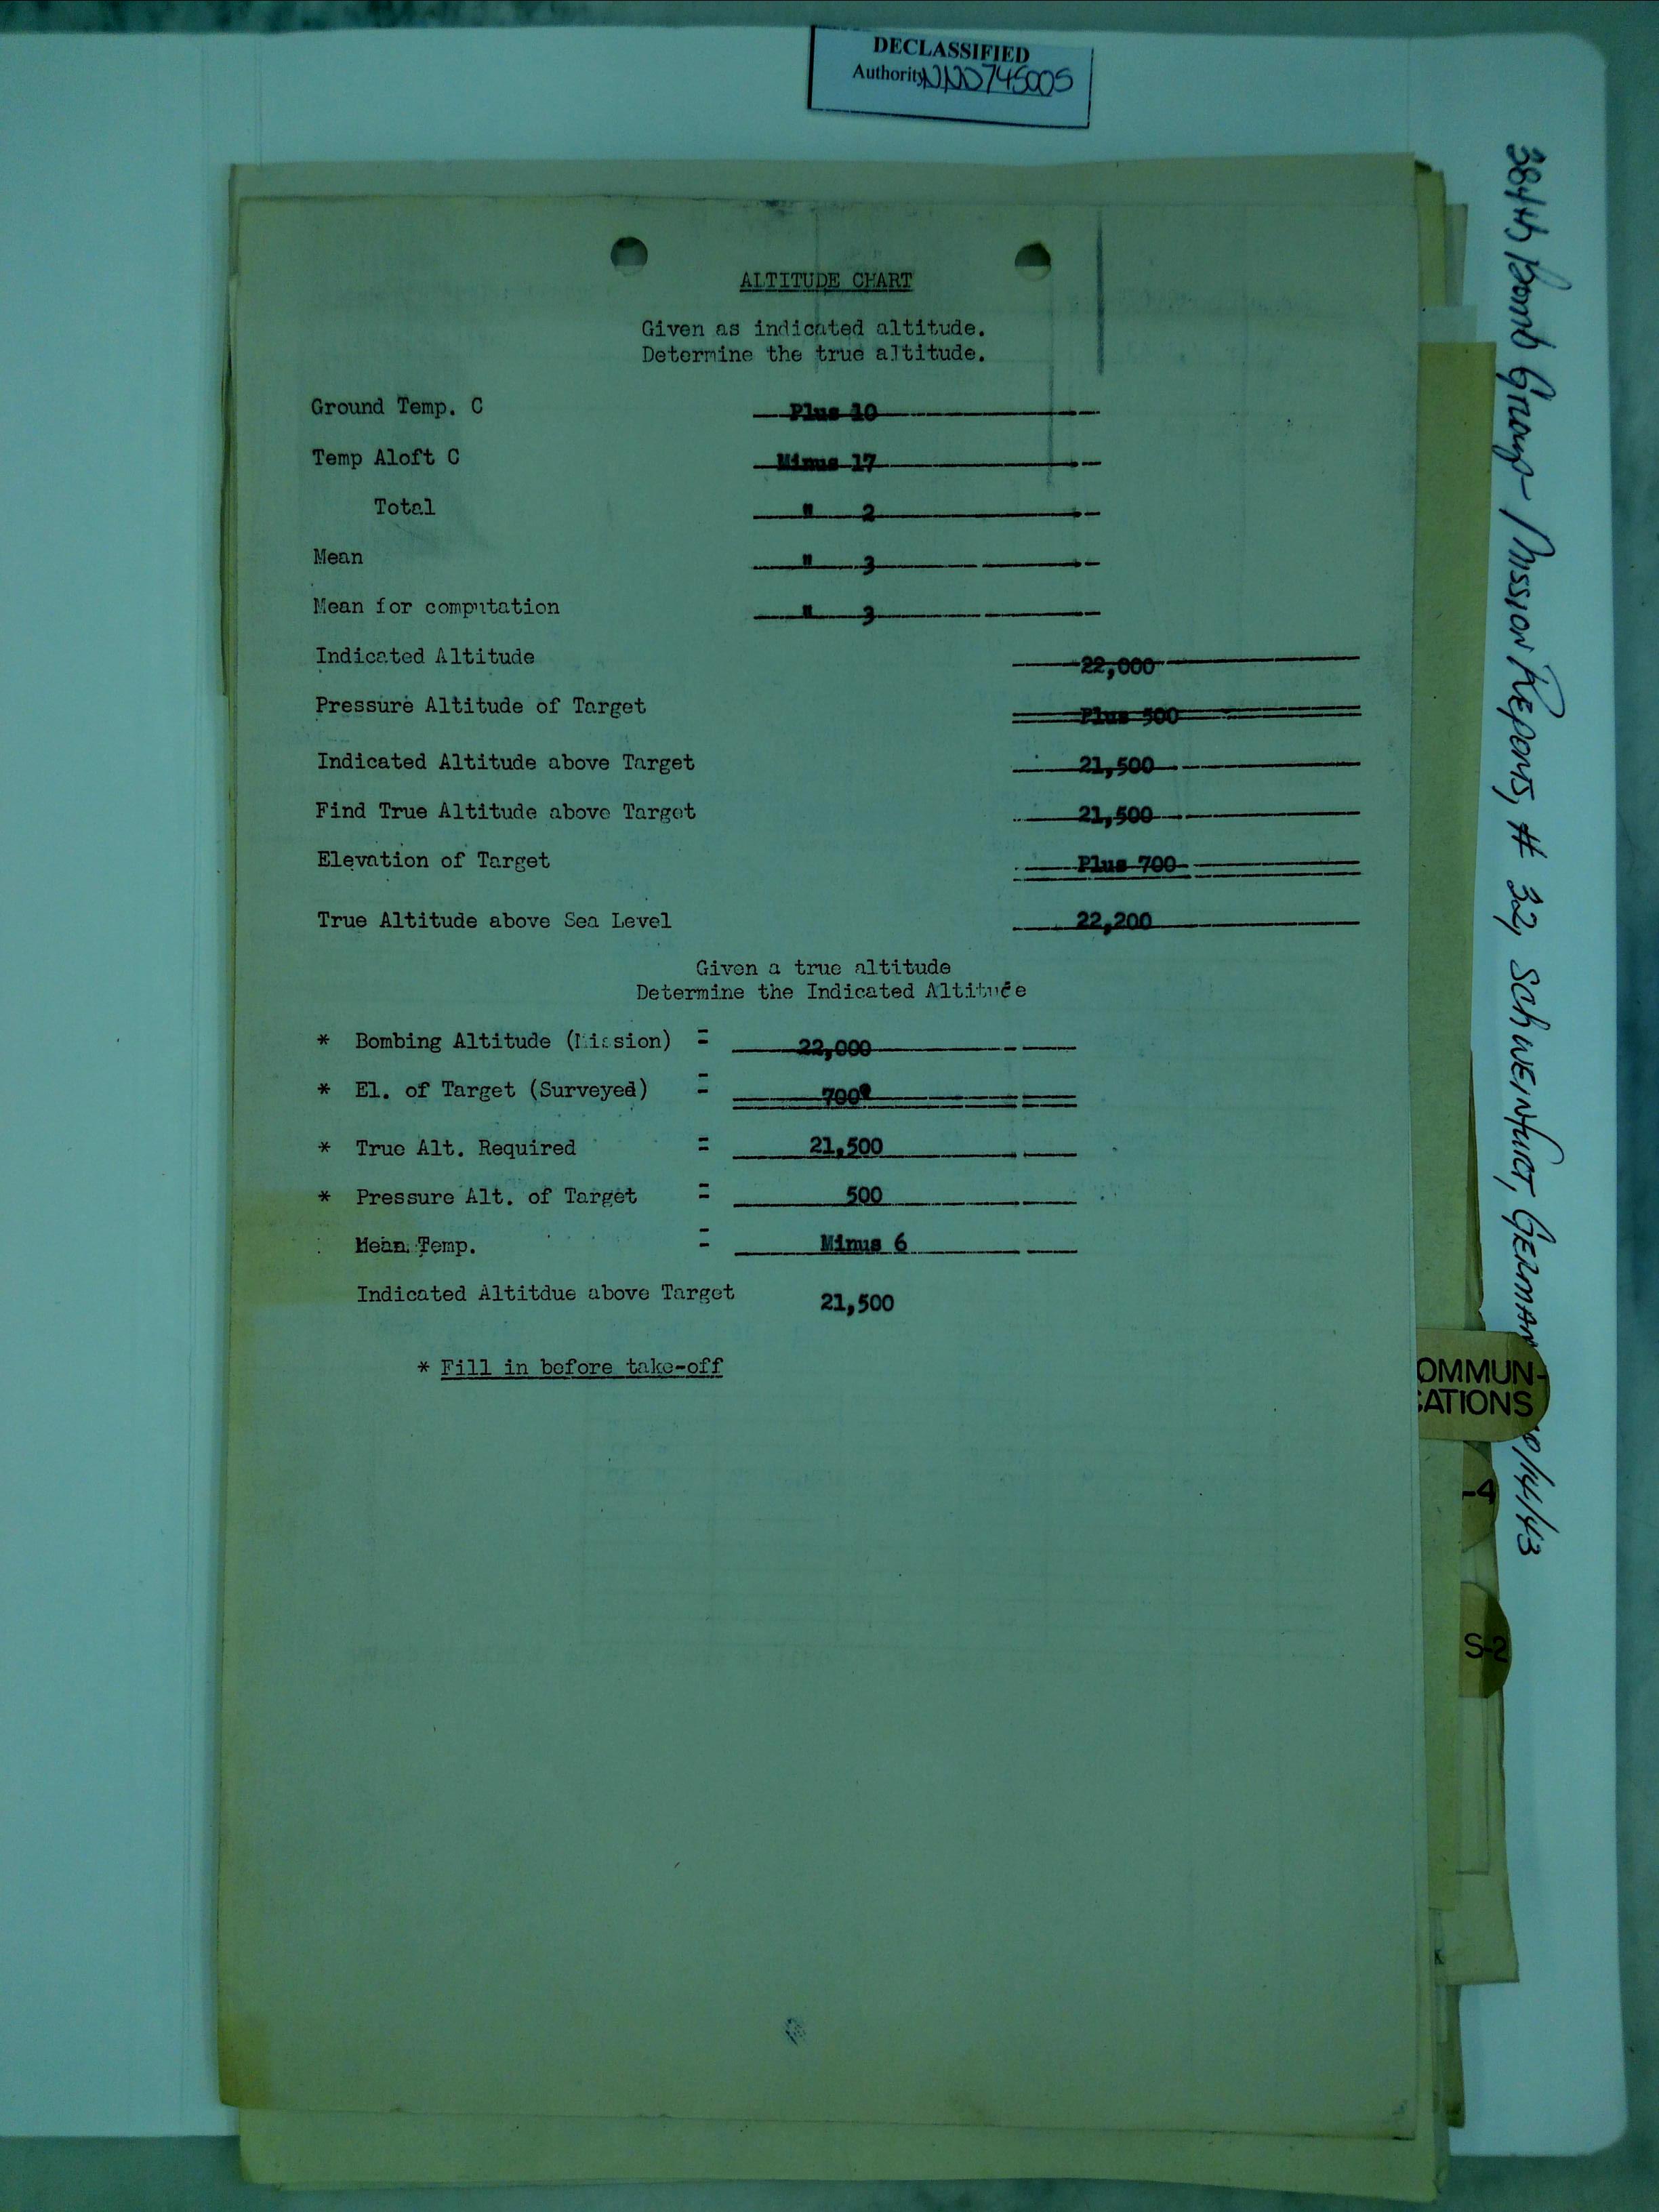 DECLASSIFIED
Authority NND745005
ALTITUDE CHART
Given as indicated altitude.
Determine the true altitude.
Ground Temp. C Plus 10
Temp Aloft C Minus 17
Total " 2
Mean " 3
Mean for computation " 3
Indicated Altitude 22,000
Pressure Altitude of Target Plus 500
Indicated Altitude above Target 21,500
Find True Altitude above Target 21,500
Elevation of Target Plus 700
True Altitude above Sea Level 22,200
Given a true altitude
Determine the Indicated Altitude
* Bombing Altitude (Mission) = 22,000
* El. of Target (Surveyed) = 700'
* True Alt. Required = 21,500
* Pressure Alt. of Target = 500
Mean Temp. = Minus 6
Indicated Altitdue above Target 21,500
* Fill in before take-off
384th Bomb Group - Mission Reports, # 32, Schweinfurt, German 10/14/43
OMMUN-
CATIONS
-4
S-2